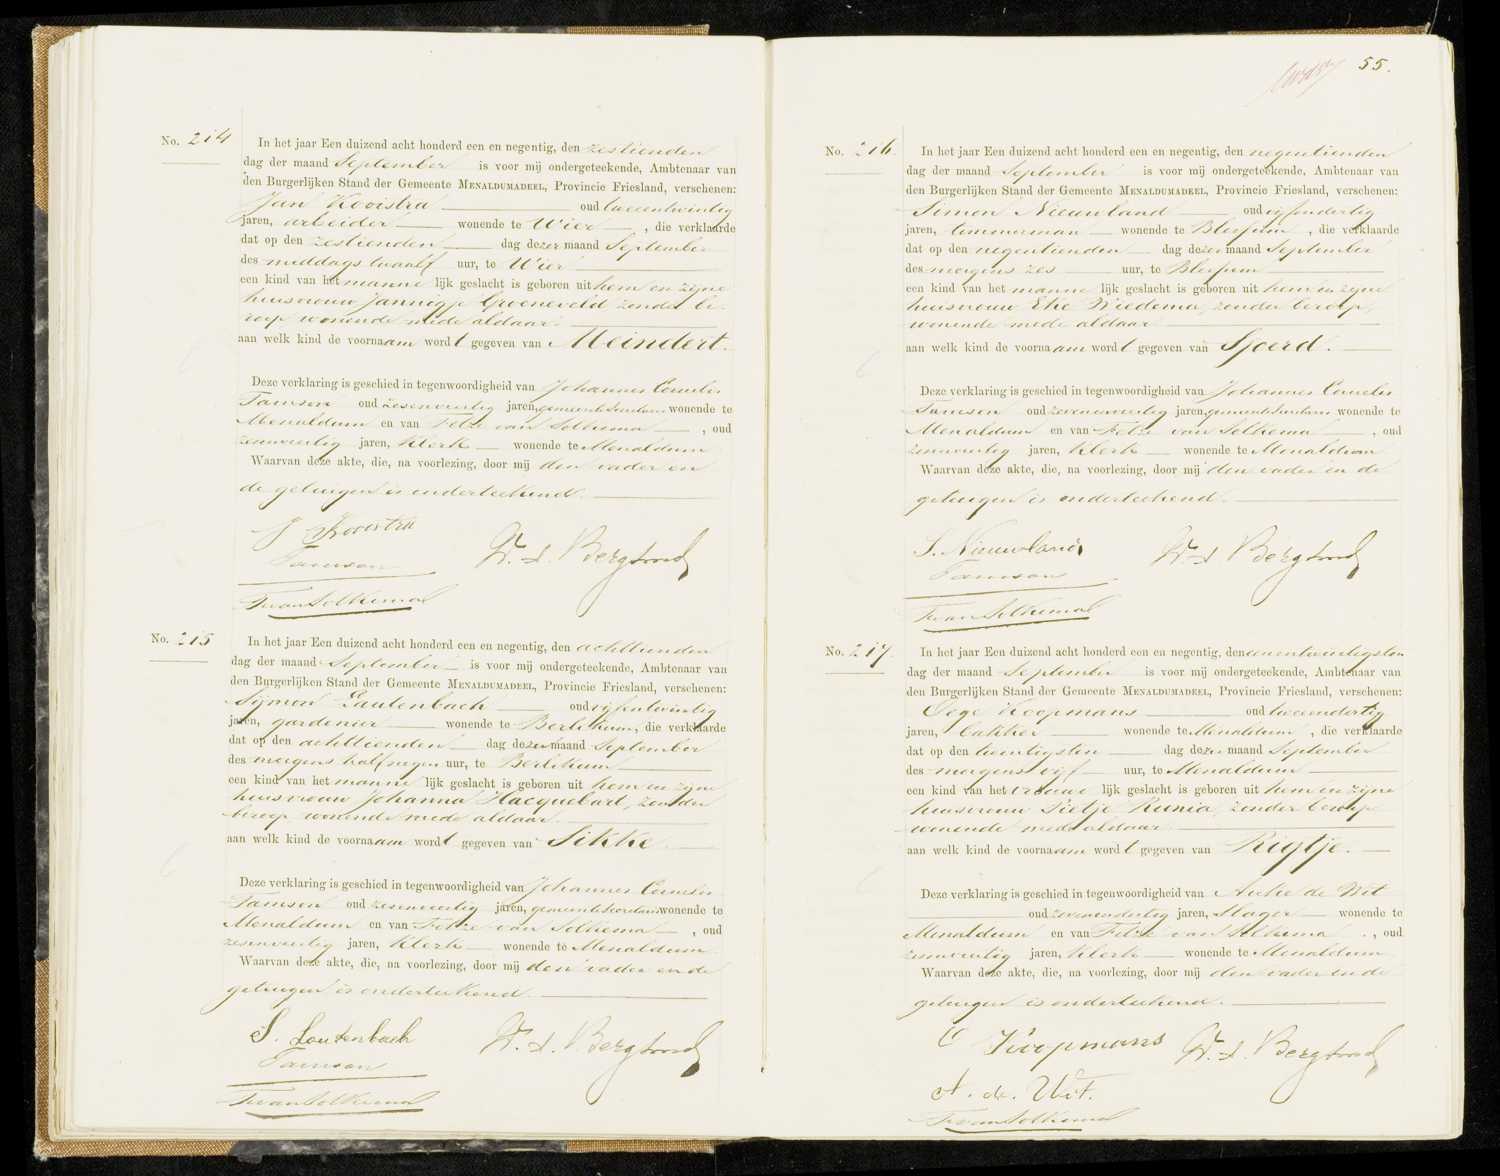 No. 214
In het jaar Een duizend acht honderd een en negentig, den zestienden
dag der maand September is voor mij ondergeteekende, Ambtenaar van
den Burgerlijken Stand der Gemeente MENALDUMADEEL, Provincie Friesland, verschenen:
Jan Kooistra oud tweeentwintig
jaren, arbeider wonende te Wier, die verklaarde
dat op den zestienden dag dezer maand September
des middags twaalf uur, te Wier
een kind van het mannelijk geslacht is geboren uit hem en zijne
huisvrouw Jannigje Groeneveld zonder be-
roep wonende mede aldaar.
aan welk kind de voornaam wordt gegeven van Meindert.
Deze verklaring is geschied in tegenwoordigheid van Johannes Cornelis
Tamson oud zesenveertig jaren, gemeente Secretaris wonende te
Menaldum en van Fetze van Solkema, oud
zesenveertig jaren, Klerk wonende te Menaldum
Waarvan deze akte, die, na voorlezing, door mij den vader en
de getuigen is onderteekend.
J Kooistra
Tamson
W. S. Bergstra
F van Solkema
No. 215
In het jaar Een duizend acht honderd een en negentig, den achttienden
dag der maand September is voor mij ondergeteekende, Ambtenaar van
den Burgerlijken Stand der Gemeente MENALDUMADEEL, Provincie Friesland, verschenen:
Sijmon Lautenbach oud vijfentwintig
jaren, gardenier wonende te Berlikum, die verklaarde
dat op den achttienden dag dezer maand September
des morgens half negen uur, te Berlikum
een kind van het mannelijk geslacht is geboren uit hem en zijne
huisvrouw Johanna Hacquebart, zonder
beroep wonende mede aldaar.
aan welk kind de voornaam wordt gegeven van Sikke.
Deze verklaring is geschied in tegenwoordigheid van Johannes Cornelis
Tamson oud zesenveertig jaren, gemeente Secretaris wonende te
Menaldum en van Fetze van Solkema, oud
zesenveertig jaren, Klerk wonende te Menaldum
Waarvan deze akte, die, na voorlezing, door mij den vader en de
getuigen is onderteekend.
S. Lautenbach
Tamson
W. S. Bergstra
F van Solkema
55.
No. 216.
In het jaar Een duizend acht honderd een en negentig, den negentienden
dag der maand September is voor mij ondergeteekende, Ambtenaar van
den Burgerlijken Stand der Gemeente MENALDUMADEEL, Provincie Friesland, verschenen:
Simon Nieuwland oud vijfendertig
jaren, timmerman wonende te Blessum, die verklaarde
dat op den negentienden dag dezer maand September
des morgens zes uur, te Blessum
een kind van het mannelijk geslacht is geboren uit hem en zijne
huisvrouw Eke Weedema, zonder beroep,
wonende mede aldaar
aan welk kind de voornaam wordt gegeven van Sjoerd.
Deze verklaring is geschied in tegenwoordigheid van Johannes Cornelis
Tamson oud zevenenveertig jaren, gemeente Secretaris wonende te
Menaldum en van Fetze van Solkema, oud
zesenveertig jaren, Klerk wonende te Menaldum
Waarvan deze akte, die, na voorlezing, door mij den vader en de
getuigen is onderteekend.
S. Nieuwland
Tamson
W. S. Bergstra
F van Solkema
No. 217.
In het jaar Een duizend acht honderd een en negentig, den eenentwintigsten
dag der maand September is voor mij ondergeteekende, Ambtenaar van
den Burgerlijken Stand der Gemeente MENALDUMADEEL, Provincie Friesland, verschenen:
Oege Koopmans oud tweeendertig
jaren, bakker wonende te Menaldum, die verklaarde
dat op den twintigsten dag dezer maand September
des morgens vijf uur, te Menaldum
een kind van het vrouwelijk geslacht is geboren uit hem en zijne
huisvrouw Pietje Runia, zonder beroep
wonende mede aldaar
aan welk kind de voornaam wordt gegeven van Rigtje.
Deze verklaring is geschied in tegenwoordigheid van Auke de Wit
oud zevenendertig jaren, Slager wonende te
Menaldum en van Fetze van Solkema, oud
zesenveertig jaren, Klerk wonende te Menaldum
Waarvan deze akte, die, na voorlezing, door mij den vader en de
getuigen is onderteekend.
O Koopmans
W. S. Bergstra
A. de Wit.
F van Solkema